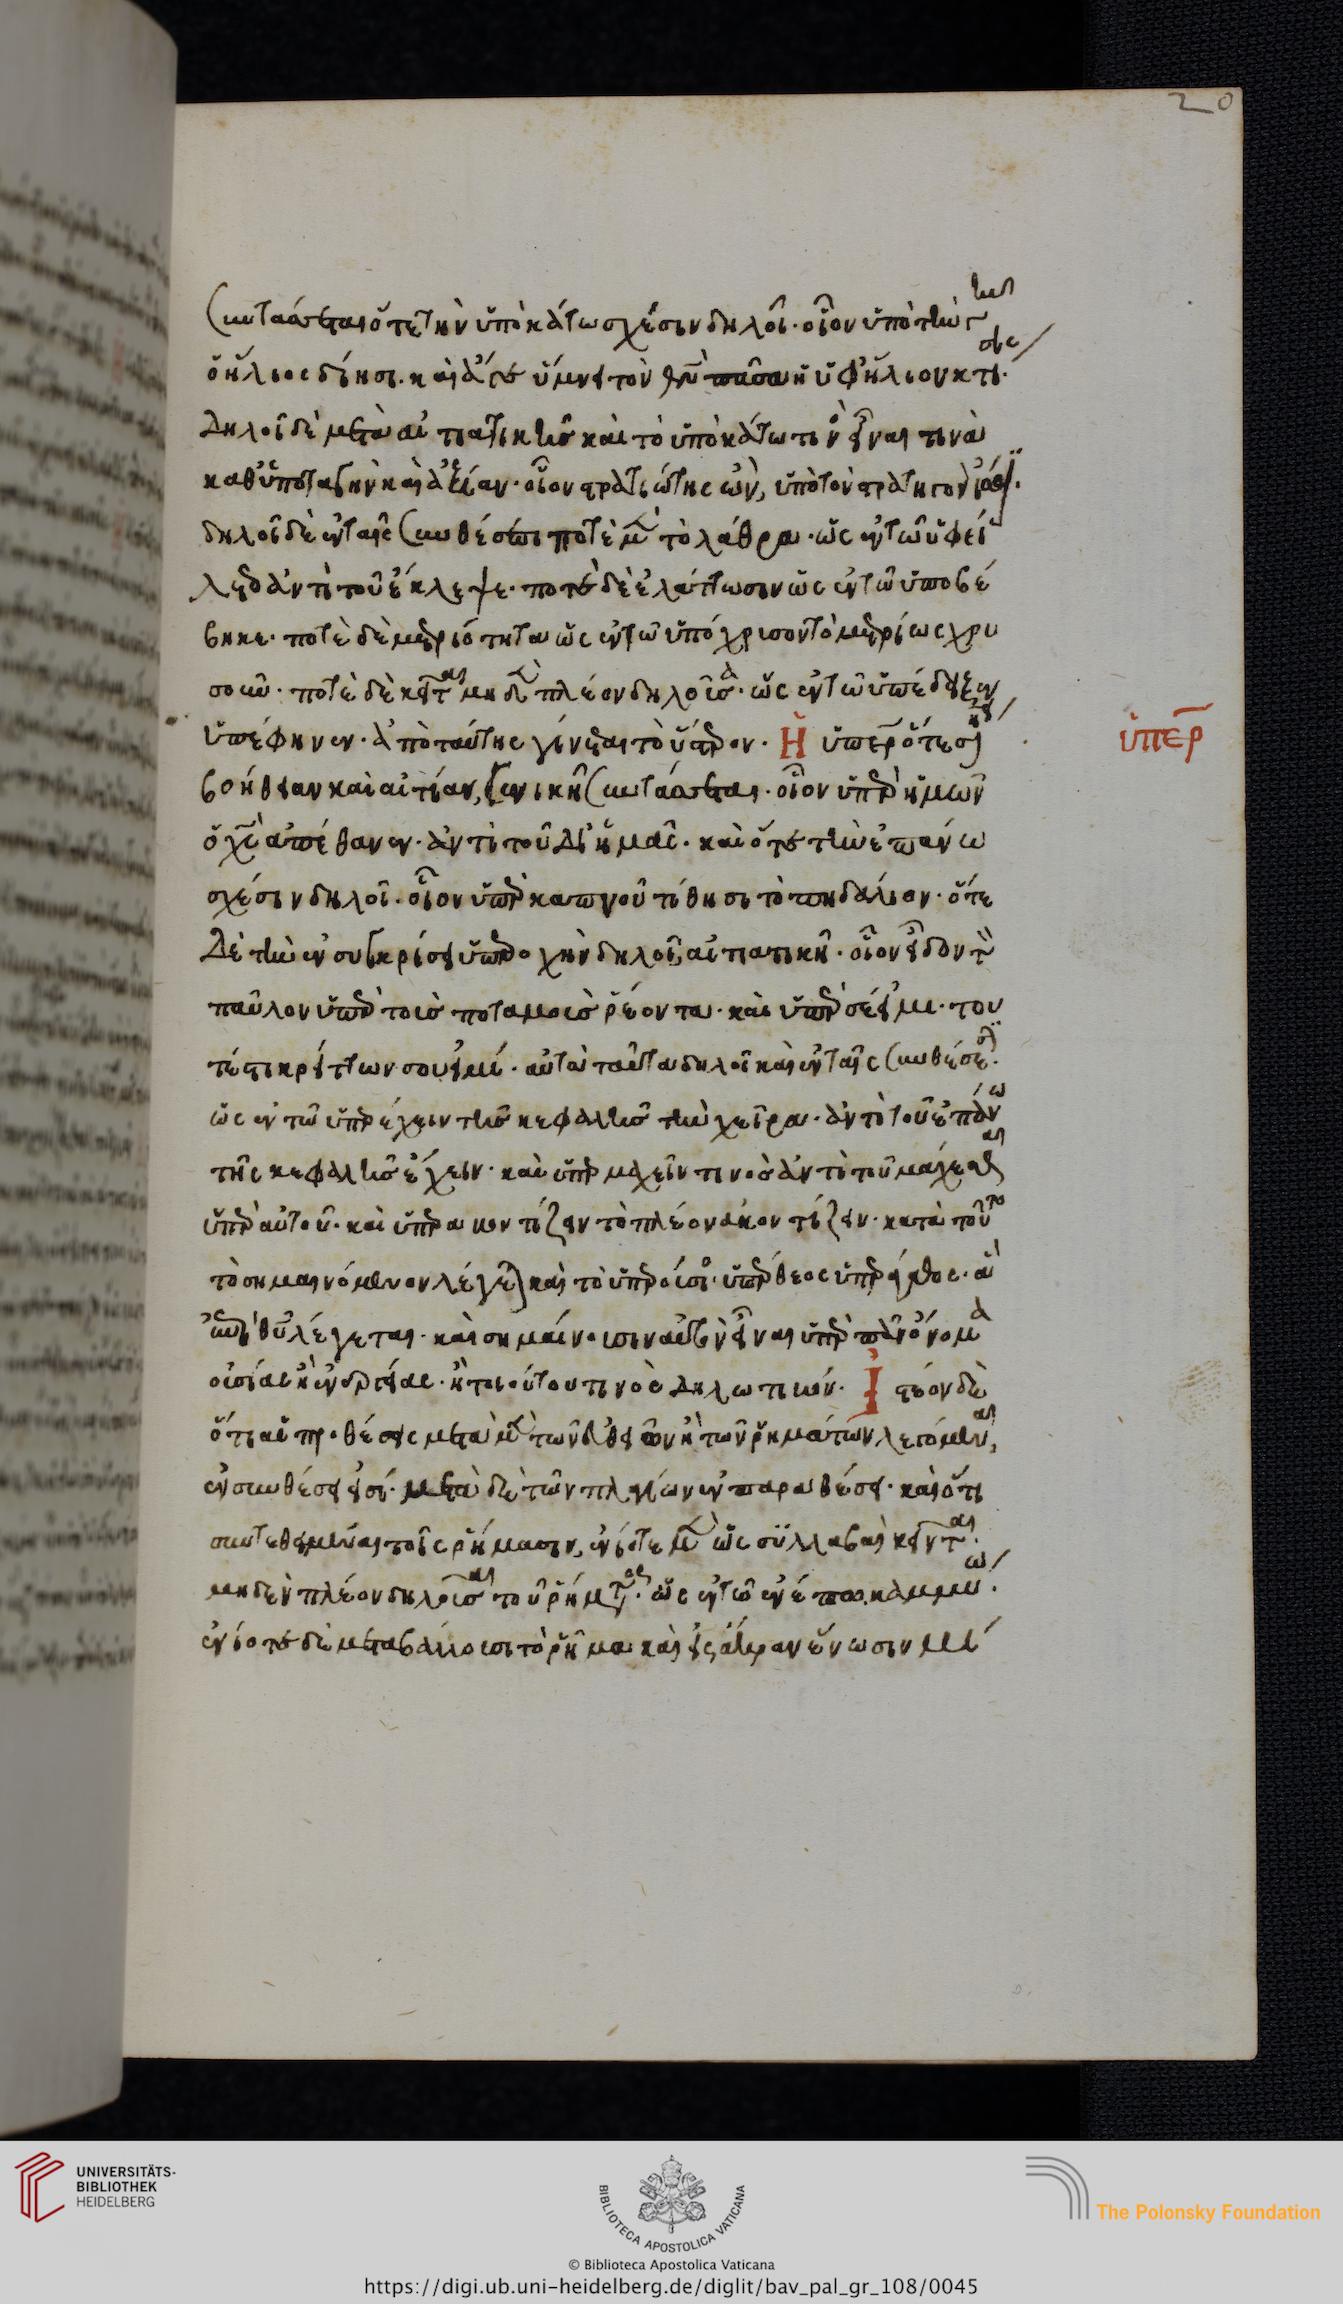 20
συντάσσεται ὅτε τὴν ὑποκάτω σχέσιν δηλοῖ· οἷον ὑπὸ τὴν γῆν
ὁ ἥλιος δύησι· καὶ
δηλοῖ δὲ μετὰ αἰτιατικῆς καὶ τὸ ὑποκάτω τινὸς εἶναι τινὰ
καθ' ὑποταγὴν καὶ ἀξίαν· οἷον στρατιώτης ὢν, ὑπὸ τὸν στρατηγὸν
δηλοῖ δὲ ἐν ταῖς συνθέσεσι ποτὲ μὲν τὸ λάθρα· ὡς ἐν τῶ ὑφεί
λετο ἀντὶ τοῦ ἔκλεψε· ποτὲ δὲ ἐλάττωσιν ὡς ἐν τῶ ὑποβέ
βηκε· ποτὲ δὲ μετριότητα ὡς ἐν τῶ ὑπόχρυσον τὸ μετρίως χρυ
σοῦν· ποτὲ δὲ κεῖται μηδὲν πλέον δηλοῦσα· ὡς ἐν τῶ ὑπέδειξεν
ὑπέφηνεν· ἀπὸ ταύτης γίνεται τὸ ὕστερον· Ἡ ὑπὲρ ὅτε
ὑπὲρ
βοήθειαν καὶ αἰτίαν, γενικῆ συντάσσεται· οἷον ὑπὲρ ἡμῶν
ὁ χς ἀπέθανεν· ἀντὶ τοῦ δι' ἡμᾶς· καὶ ὅτε τὴν ἐπάνω
σχέσιν δηλοῖ· οἷον ὑπὲρ καπνοῦ τίθησι τὸ πηδάλιον· ὅτε
δὲ τὴν ἐν συγκρίσει ὑπεροχὴν δηλοῖ, αἰτιατικῆ· οἷον εἶδον τὸν
παῦλον ὑπὲρ τοὺς ποταμοὺς ῥέοντα· καὶ ὑπὲρ σέ εἰμι· του
τέστι κρείττων σου εἰμί· αὐτὰ ταῦτα δηλοῖ καὶ ἐν ταῖς συνθέσεσι·
ὡς ἐν τῶ ὑπερέχειν τῆς κεφαλῆς τὴν χεῖρα· ἀντὶ τοῦ ἐπάνω
τῆς κεφαλῆς ἔχειν· καὶ ὑπερμαχεῖν τινος ἀντὶ τοῦ μάχεσθαι
ὑπὲρ αὐτοῦ· καὶ ὑπερακοντίζειν τὸ πλέον ἀκοντίζειν· κατὰ τοῦτο
τὸ σημαινόμενον λέγεται καὶ τὸ ὑπερούσιος· ὑπέρθεος ὑπεράγαθος· ἃ
ἐπὶ θυ λέγεται· καὶ σημαίνουσιν αὐτὸν εἶναι ὑπὲρ πᾶν ὄνομα
οὐσίας ἢ ἐνεργείας· ἢ τοιούτου τινὸς δηλωτικόν· Ἰστέον δὲ
ὅτι αἱ προθέσεις μετὰ μὲν τῶν εὐθειῶν ἢ τῶν ῥημάτων λεγόμεναι,
ἐν συνθέσει εἰσί· μετὰ δὲ τῶν πλαγίων ἐν παραθέσει· καὶ ὅτι
συντεθειμέναι τοῖς ῥήμασιν, ἐνίοτε μὲν ὡς συλλαβαὶ κεῖνται
μηδὲν πλέον δηλοῦσαι τοῦ ῥήματος· ὡς ἐν τῶ
ἐνίοτε δὲ μεταβάλλουσι τὸ ῥῆμα καὶ εἰς ἑτέραν ἕνωσιν
UNIVERSITÄTS-
BIBLIOTHEK
HEIDELBERG
BIBLIOTECA APOSTOLICA VATICANA
The Polonsky Foundation
© Biblioteca Apostolica Vaticana
https://digi.ub.uni-heidelberg.de/diglit/bav_pal_gr_108/0045